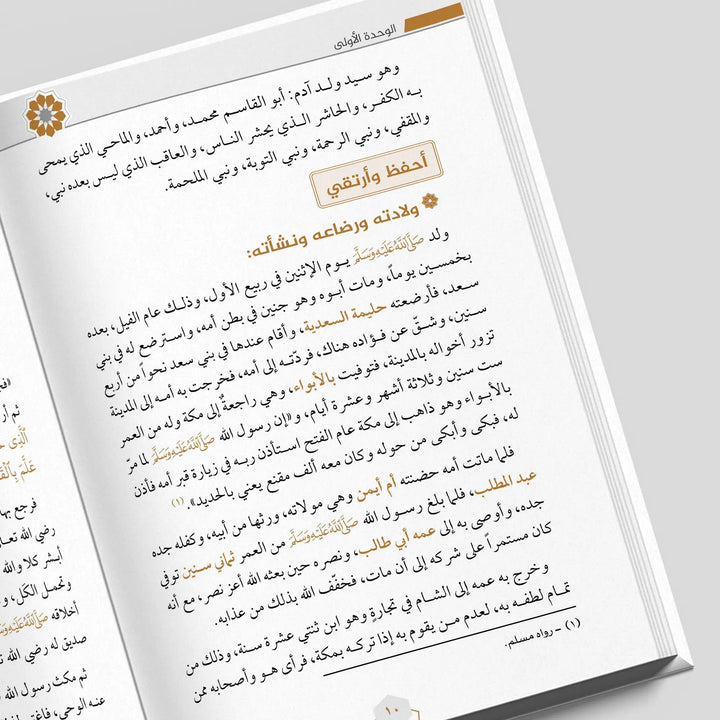 الوحدة الأولى
وهو سيد ولد آدم: أبو القاسم محمد، وأحمد، والماحي الذي يمحى
به الكفر، والحاشر الذي يحشر الناس، والعاقب الذي ليس بعده نبي،
والمقفي، ونبي الرحمة، ونبي التوبة، ونبي الملحمة.
أحفظ وأرتقي
ولادته ورضاعه ونشأته:
ولد صَلَّى اللَّهُ عَلَيْهِ وَسَلَّمَ يوم الإثنين في ربيع الأول، وذلك عام الفيل، بعده
بخمسين يوماً، ومات أبوه وهو جنين في بطن أمه، واسترضع له في بني
سعد، فأرضعته حليمة السعدية، وأقام عندها في بني سعد نحواً من أربع
سنين، وشقّ عن فؤاده هناك، فردّته إلى أمه، فخرجت به أمه إلى المدينة
تزور أخواله بالمدينة، فتوفيت بالأبواء، وهي راجعةٌ إلى مكة وله من العمر
ست سنين وثلاثة أشهر وعشرة أيام، و«إن رسول الله صَلَّى اللَّهُ عَلَيْهِ وَسَلَّمَ لما مرّ
بالأبواء وهو ذاهب إلى مكة عام الفتح استأذن ربه في زيارة قبر أمه فأذن
له، فبكى وأبكى من حوله وكان معه ألف مقنع يعني بالحديد». (١)
فلما ماتت أمه حضنته أم أيمن وهي مولاته، ورثها من أبيه، وكفله جده
عبد المطلب، فلما بلغ رسول الله صَلَّى اللَّهُ عَلَيْهِ وَسَلَّمَ من العمر ثماني سنين توفي
جده، وأوصى به إلى عمه أبي طالب، ونصره حين بعثه الله أعز نصر، مع أنه
كان مستمراً على شركه إلى أن مات، فخفّف الله بذلك من عذابه.
وخرج به عمه إلى الشام في تجارةٍ وهو ابن ثنتي عشرة سنة، وذلك من
تمام لطفه به، لعدم من يقوم به إذا تركه بمكة، فرأى هو وأصحابه ممن
(١) - رواه مسلم.
١٠
ثم أر
فرجع بها
رضي الله تعا
أبشر كلا والله
وتحمل الكَلّ، و
أخلاقه
صديق له رضي الله ت
ثم مكث رسول الله
عنه الوحي، فاغتم